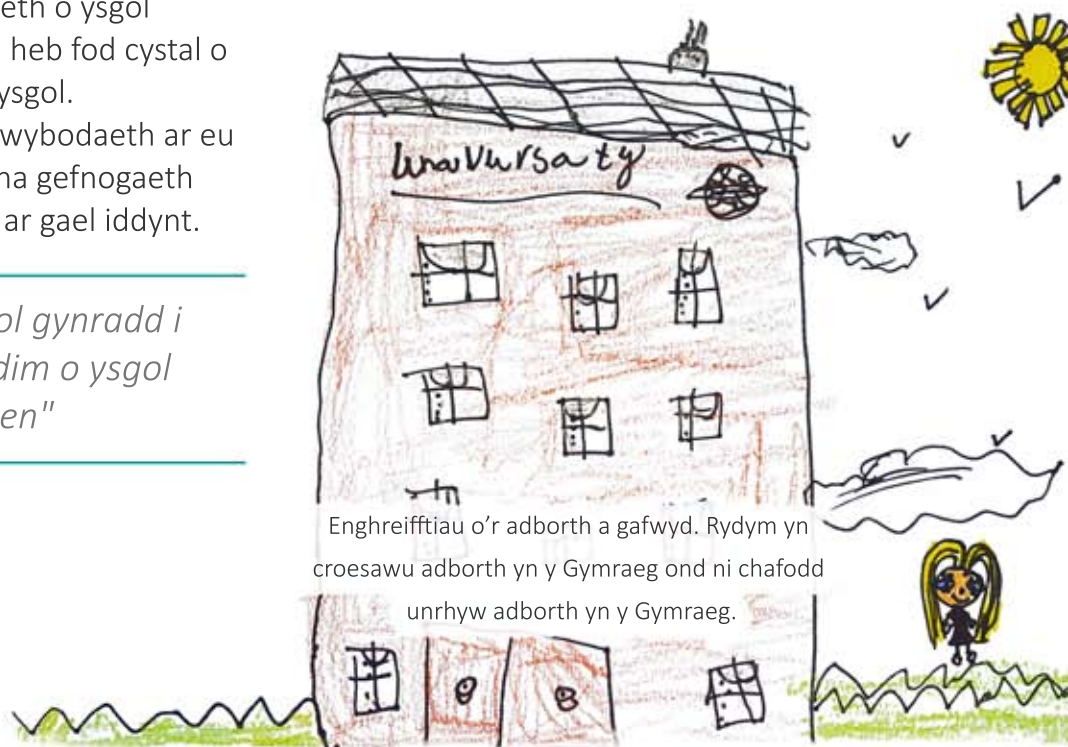 eth o ysgol
heb fod cystal o
ysgol.
wybodaeth ar eu
na gefnogaeth
ar gael iddynt.
ol gynradd i
dim o ysgol
en"
unavursaty
Enghreifftiau o'r adborth a gafwyd. Rydym yn
croesawu adborth yn y Gymraeg ond ni chafodd
unrhyw adborth yn y Gymraeg.